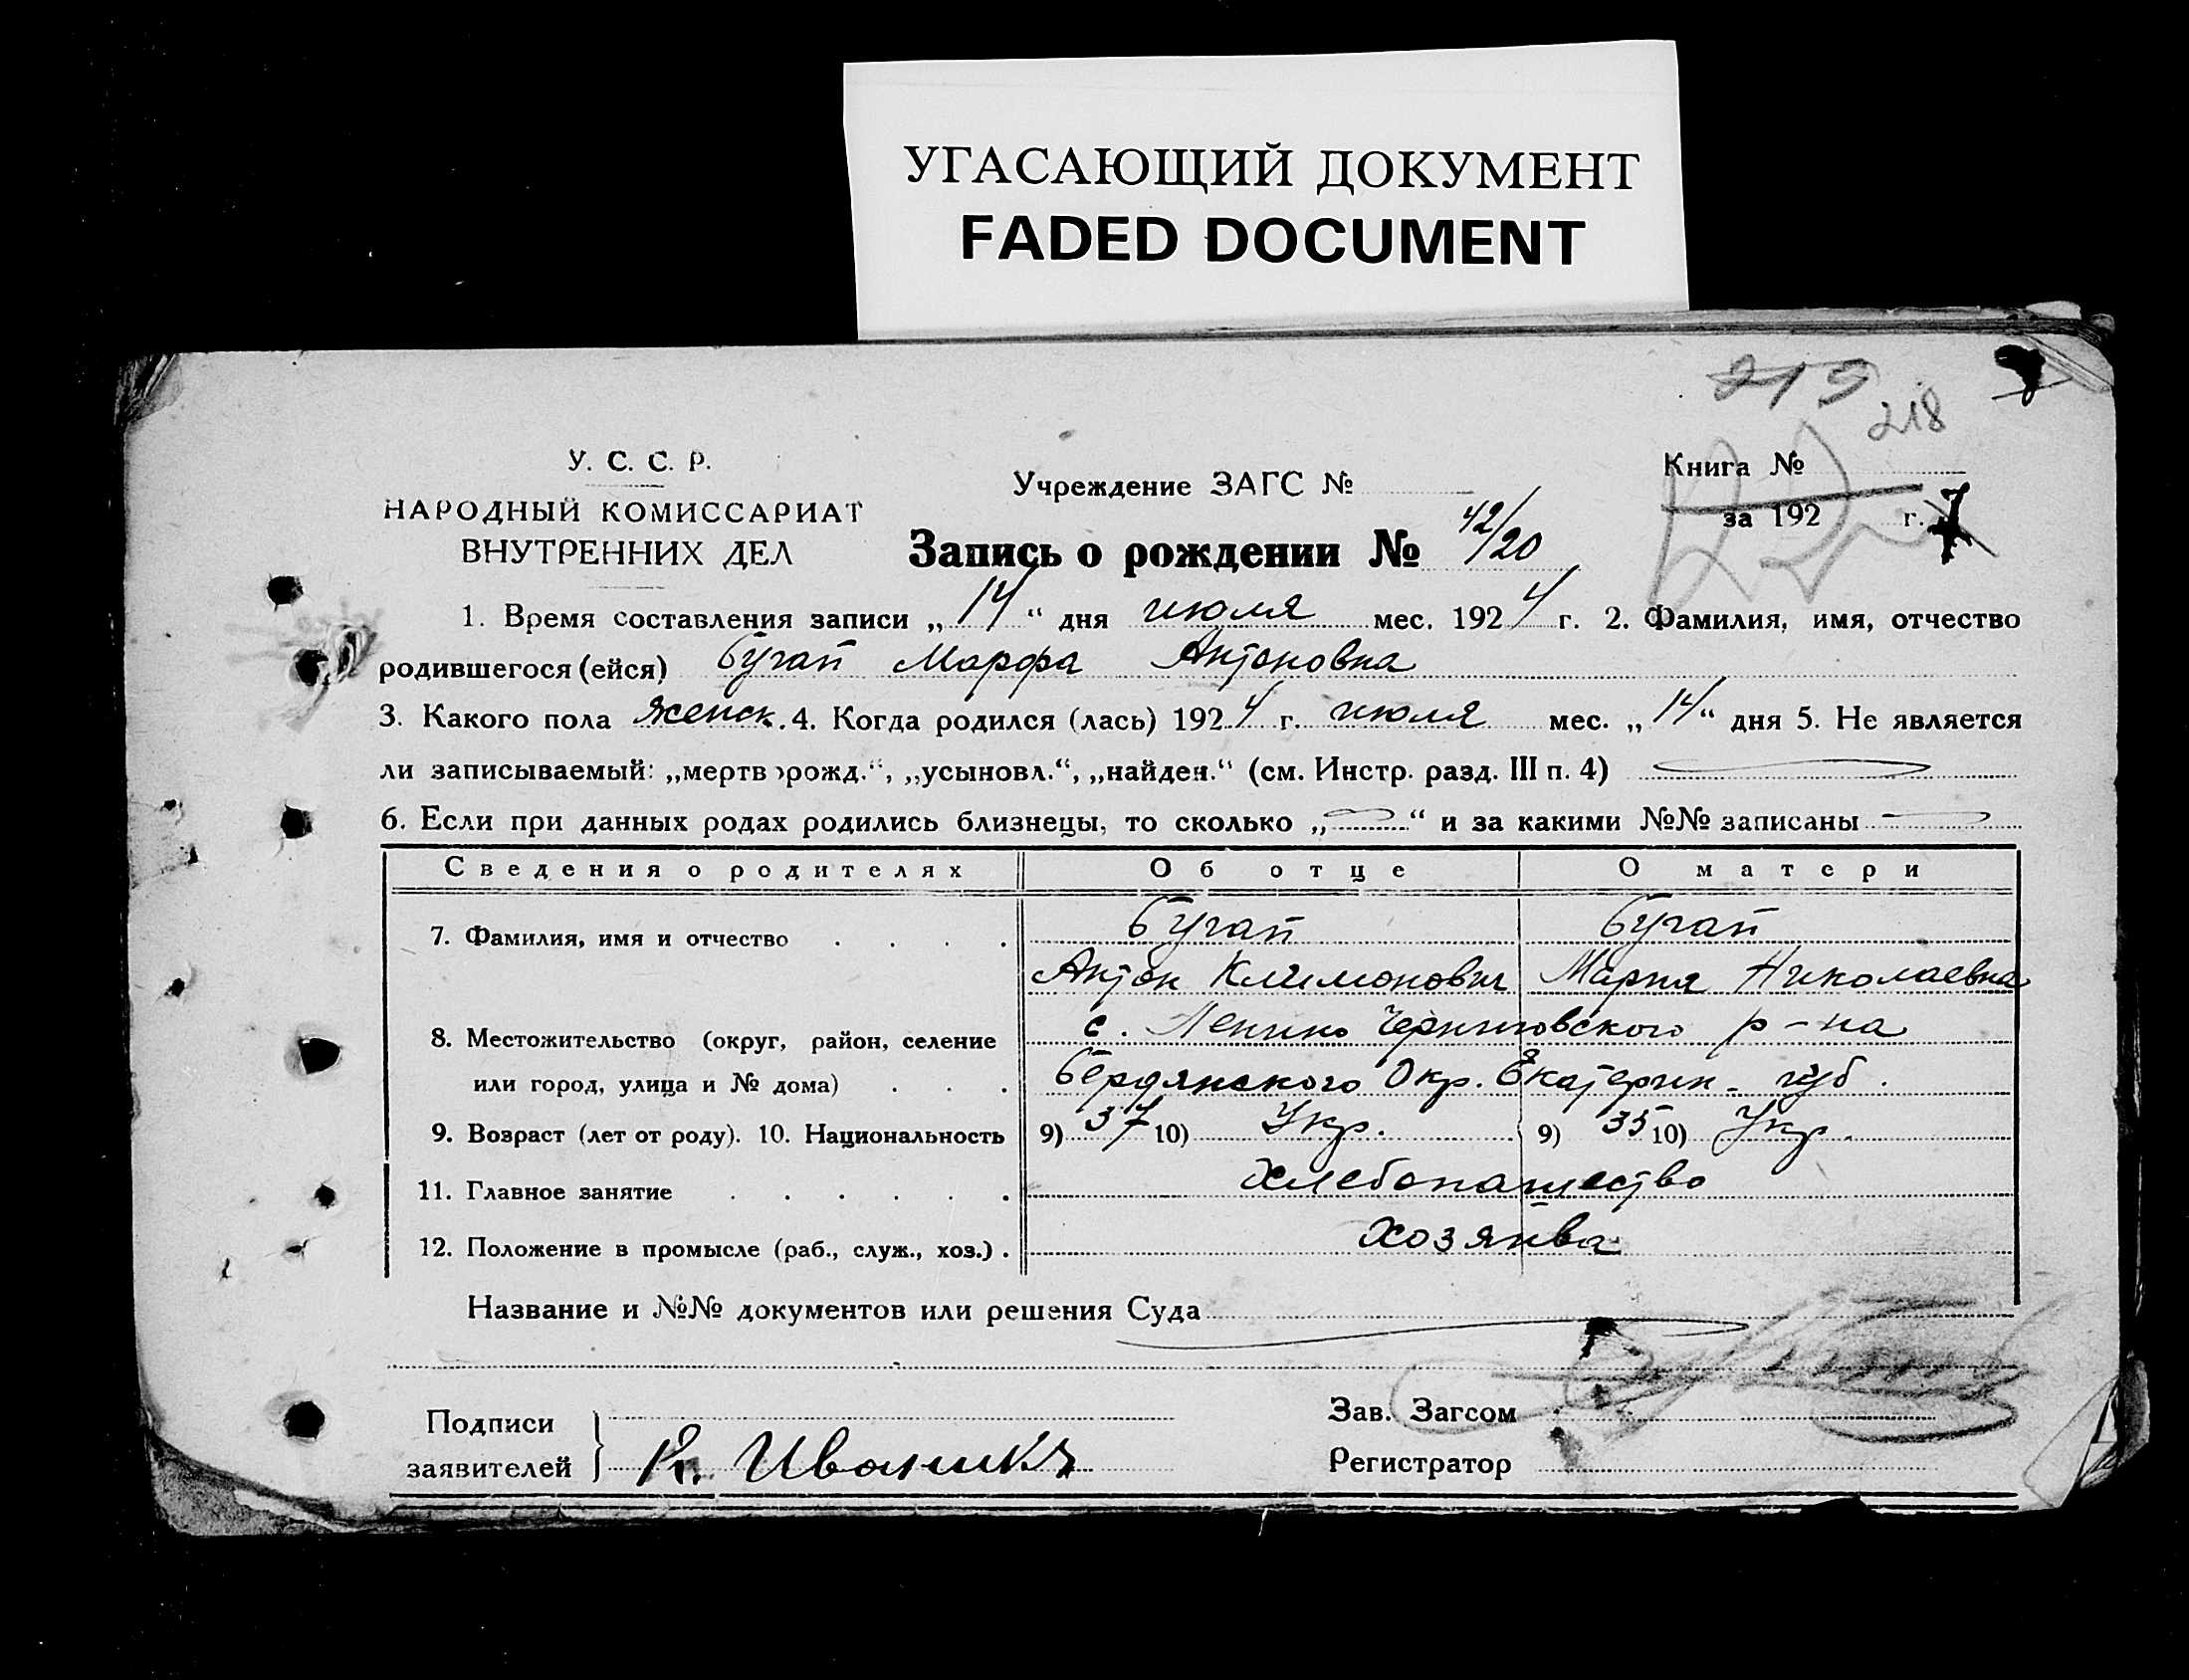 УГАСАЮЩИЙ ДОКУМЕНТ
FADED DOCUMENT
219
218
У. С. С. Р.
НАРОДНЫЙ КОМИССАРИАТ
ВНУТРЕННИХ ДЕЛ
Учреждение ЗАГС №
Запись о рождении № 42/20
Книга №
за 192 г.
1. Время составления записи „14“ дня июля мес. 1924 г. 2. Фамилия, имя, отчество
родившегося (ейся) Бугай Марфа Антоновна
3. Какого пола женск. 4. Когда родился (лась) 1924 г. июля мес. „14“ дня 5. Не является
ли записываемый: „мертворожд.“, „усыновл.“, „найден.“ (см. Инстр. разд. III п. 4)
6. Если при данных родах родились близнецы, то сколько „ “ и за какими №№ записаны
Сведения о родителях Об отце О матери
7. Фамилия, имя и отчество . . . . Бугай Бугай
Антон Климонович Мария Николаевна
8. Местожительство (округ, район, селение с. Ленино Черниговского р-на
или город, улица и № дома) . . . Бердянского Окр. Екатерин. губ.
9. Возраст (лет от роду). 10. Национальность 9) 37 10) Укр. 9) 35 10) Укр.
11. Главное занятие . . . . . . Хлебопашество
12. Положение в промысле (раб., служ., хоз.) . хозяйва
Название и №№ документов или решения Суда
Подписи
заявителей
Зав. Загсом
Регистратор